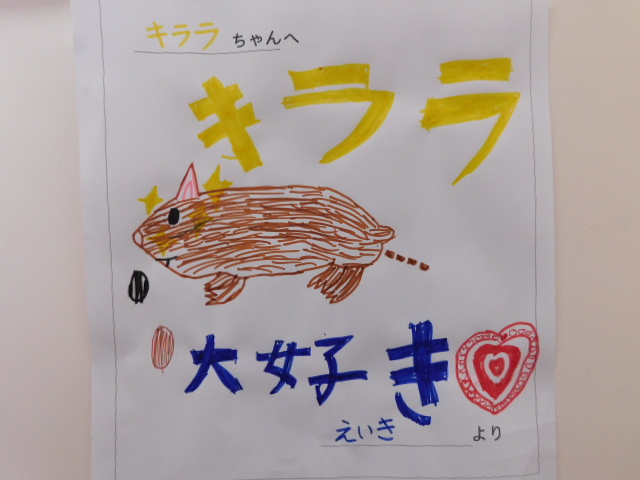 キララちゃんへ
キララ
大好き
えいきより